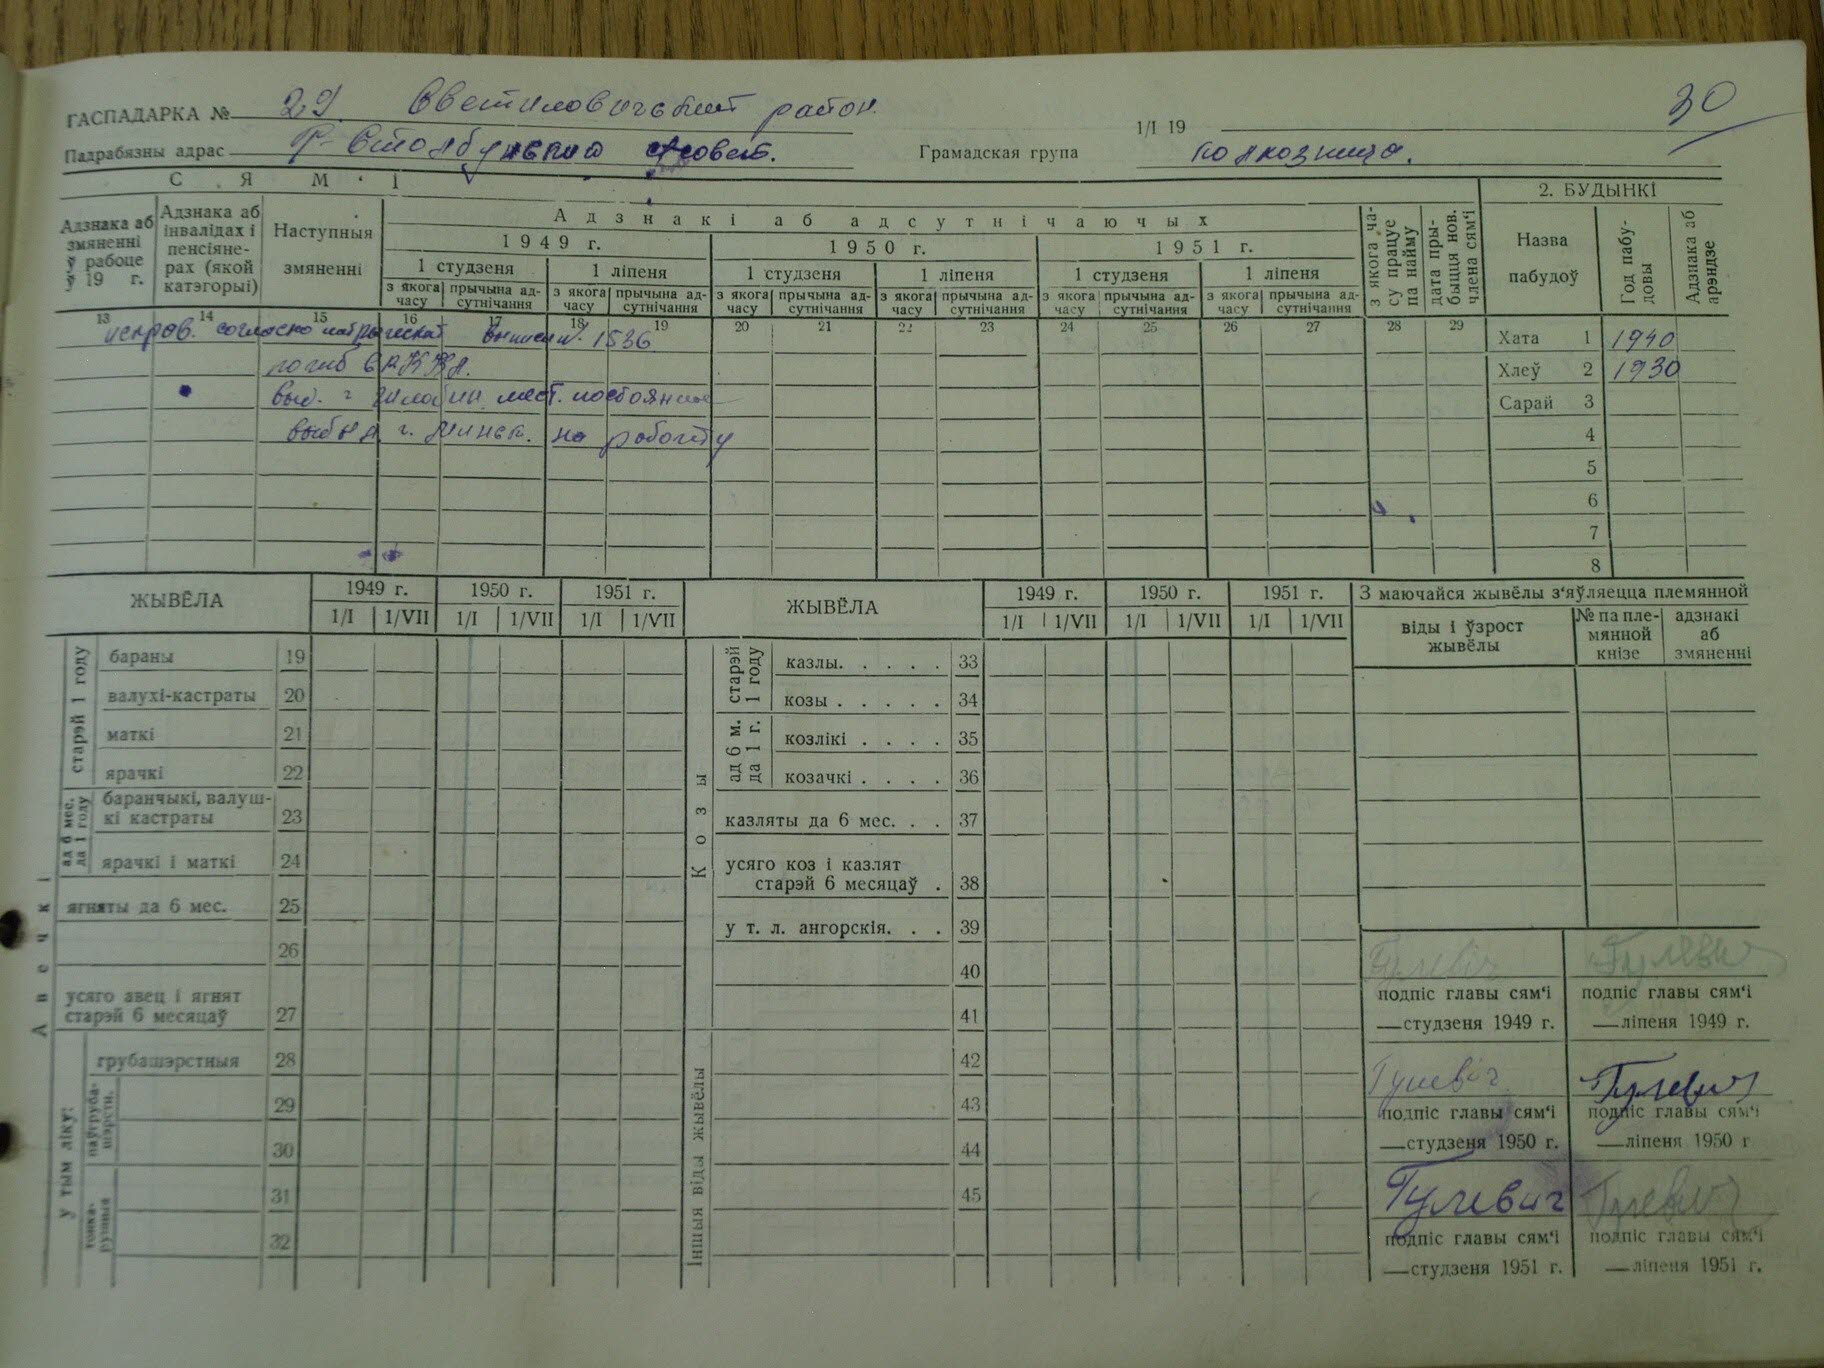 30
ГАСПАДАРКА № 29. Светиловичский район.
1/I 19
Падрабязны адрас Р-Столбунский с/совет.
Грамадская група колхозница.
СЯМ'І
2. БУДЫНКІ
Адзнака аб змяненні ў рабоце ў 19 г.
Адзнака аб інвалідах і пенсіянерах (якой катэгорыі)
Наступныя змяненні
Адзнакі аб адсутнічаючых
1949 г. 1950 г. 1951 г.
1 студзеня 1 ліпеня 1 студзеня 1 ліпеня 1 студзеня 1 ліпеня
з якога часу прычына адсутнічання з якога часу прычына адсутнічання з якога часу прычына адсутнічання з якога часу прычына адсутнічання з якога часу прычына адсутнічання з якога часу прычына адсутнічання
з якога часу працуе па найму
дата прыбыцця нов. члена сям'і
Назва пабудоў
Год пабудовы
Адзнака аб арэндзе
13 14 15 16 17 18 19 20 21 22 23 24 25 26 27 28 29
исправ. согласно выписи. 1536
погиб в РККА.
выб. г мест. постоянное
выбыл г. Минск. на работу
Хата 1 1940
Хлеў 2 1930
Сарай 3
4
5
6
7
8
ЖЫВЁЛА 1949 г. 1950 г. 1951 г.
1/I 1/VII 1/I 1/VII 1/I 1/VII
Авечкі
старэй 1 году
бараны 19
валухі-кастраты 20
маткі 21
ярачкі 22
ад 6 мес. да 1 году
баранчыкі, валушкі кастраты 23
ярачкі і маткі 24
ягняты да 6 мес. 25
26
усяго авец і ягнят старэй 6 месяцаў 27
у тым ліку:
грубашэрстныя 28
паўгрубашэрстн.
29
30
тонкарунныя
31
32
ЖЫВЁЛА 1949 г. 1950 г. 1951 г.
1/I 1/VII 1/I 1/VII 1/I 1/VII
Козы
старэй 1 году
казлы. . . . . 33
козы . . . . . 34
ад 6 м. да 1 г.
козлікі . . . . 35
козачкі . . . . 36
казляты да 6 мес. . . 37
усяго коз і казлят
старэй 6 месяцаў . 38
у т. л. ангорскія. . . 39
40
41
Іншыя віды жывёлы
42
43
44
45
З маючайся жывёлы з'яўляецца племянной
віды і ўзрост жывёлы
№ па племянной кнізе
адзнакі аб змяненні
Гулевич Гулевич
подпіс главы сям'і подпіс главы сям'і
—студзеня 1949 г. —ліпеня 1949 г.
Гулевич Гулевич
подпіс главы сям'і подпіс главы сям'і
—студзеня 1950 г. —ліпеня 1950 г
Гулевич Гулевич
подпіс главы сям'і подпіс главы сям'і
—студзеня 1951 г. —ліпеня 1951 г.